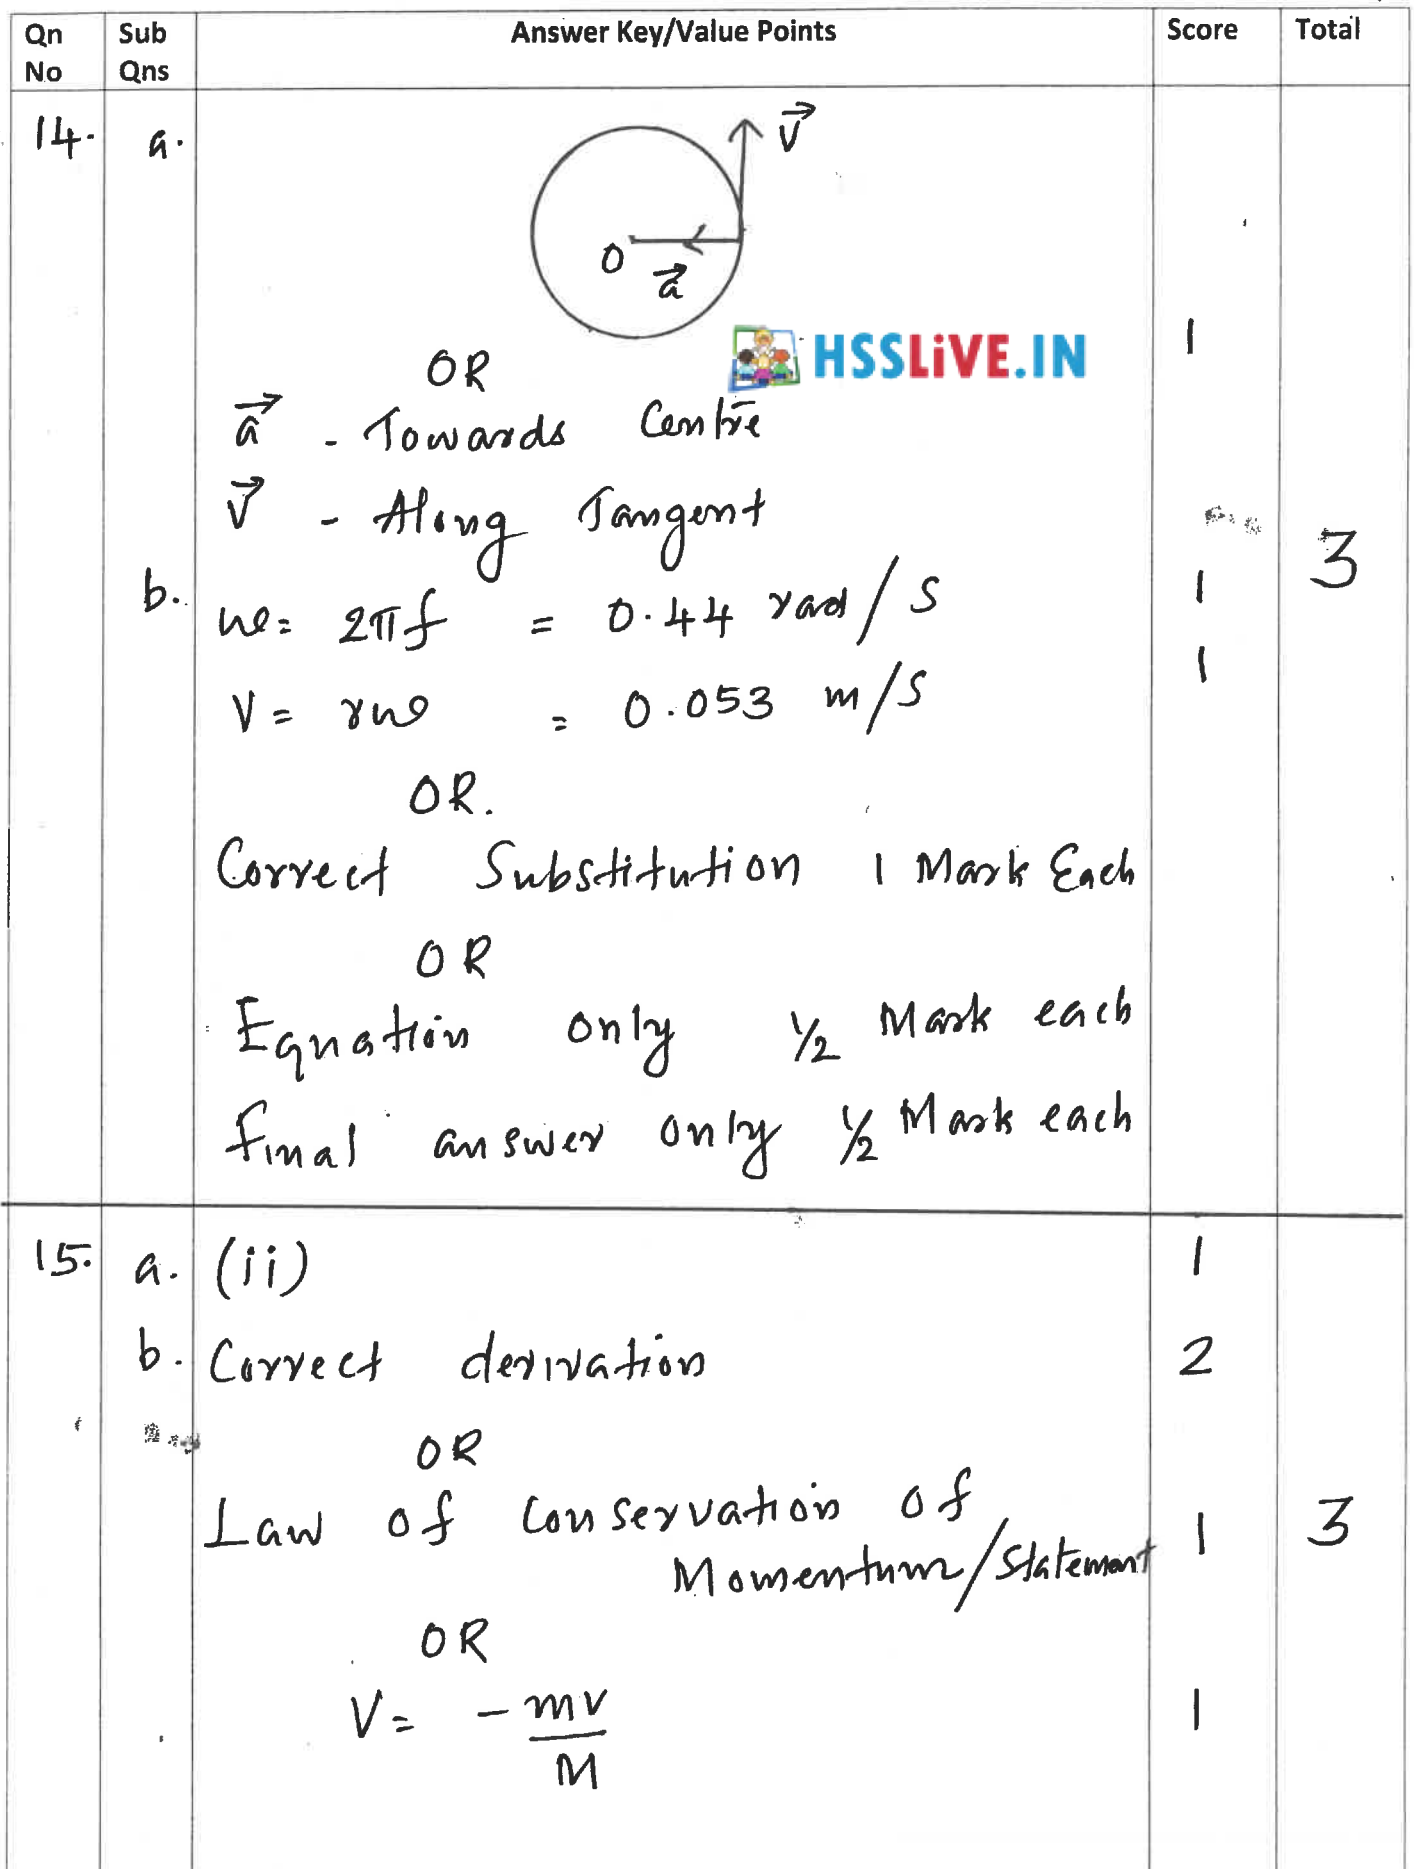 Qn No Sub Qns Answer Key/Value Points Score Total
14. a.
v⃗
O
a⃗
HSSLiVE.IN
1
OR
a⃗ - Towards Centre
v⃗ - Along Tangent
3
b. ω = 2πf = 0.44 rad/s 1
V = rω = 0.053 m/s 1
OR.
Correct Substitution 1 Mark Each
OR
Equation only ½ Mark each
final answer only ½ Mark each
15. a. (ii) 1
b. Correct derivation 2
OR
Law of Conservation of
Momentum/Statement 1 3
OR
V = -mv/M 1